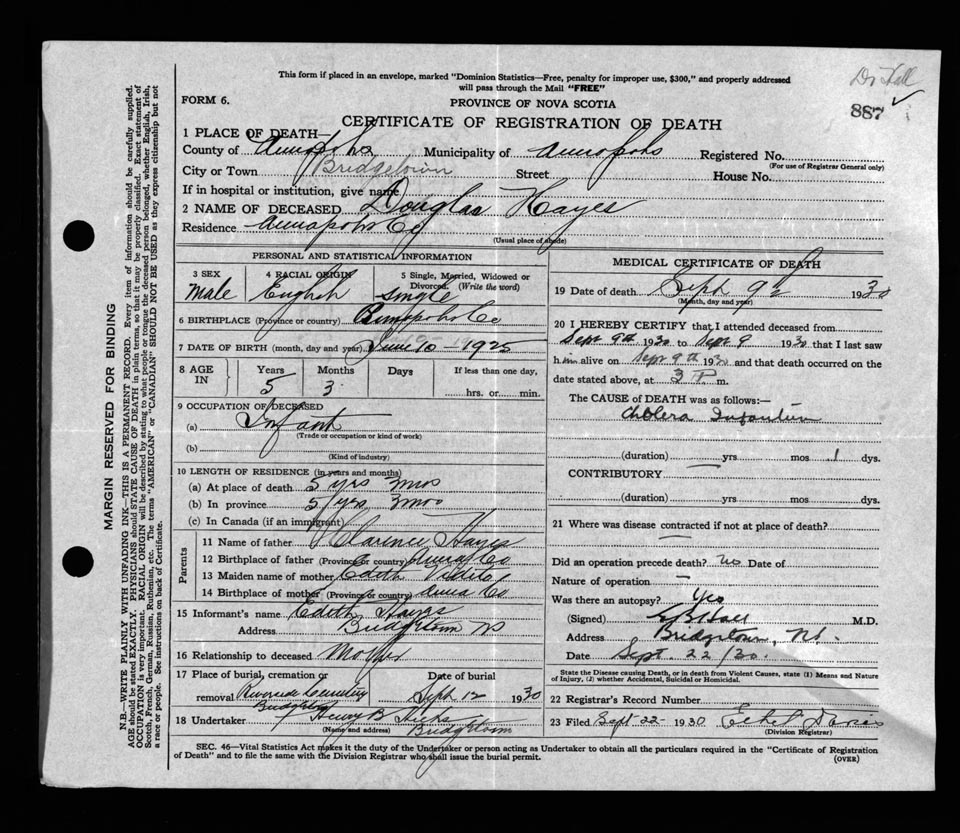 This form if placed in an envelope, marked "Dominion Statistics—Free, penalty for improper use, $300," and properly addressed
will pass through the Mail "FREE"
Dr Hall
FORM 6.
PROVINCE OF NOVA SCOTIA
887
CERTIFICATE OF REGISTRATION OF DEATH
1 PLACE OF DEATH—
County of Annapolis Municipality of Annapolis Registered No.
(For use of Registrar General only)
City or Town Bridgetown Street House No.
If in hospital or institution, give name
2 NAME OF DECEASED Douglas Hayes
Residence Annapolis Co
(Usual place of abode)
PERSONAL AND STATISTICAL INFORMATION
3 SEX 4 RACIAL ORIGIN 5 Single, Married, Widowed or
Divorced. (Write the word)
Male English Single
6 BIRTHPLACE (Province or country) Annapolis Co
7 DATE OF BIRTH (month, day and year) June 10 - 1925
8 AGE IN Years Months Days If less than one day,
5 3 hrs. or min.
9 OCCUPATION OF DECEASED
(a) Infant
(Trade or occupation or kind of work)
(b)
(Kind of industry)
10 LENGTH OF RESIDENCE (in years and months)
(a) At place of death 5 yrs 3 mos
(b) In province 5 yrs 3 mos
(c) In Canada (if an immigrant)
Parents
11 Name of father Clarence Hayes
12 Birthplace of father (Province or country) Annas Co
13 Maiden name of mother Edith
14 Birthplace of mother (Province or country) Anna Co
15 Informant's name Edith Hayes
Address Bridgetown NS
16 Relationship to deceased Mother
17 Place of burial, cremation or Date of burial
removal Riverside Cemetery Sept 12 1930
Bridgetown
18 Undertaker Henry B Hicks
(Name and address) Bridgetown
MEDICAL CERTIFICATE OF DEATH
19 Date of death Sept 9th 1930
(Month, day and year)
20 I HEREBY CERTIFY that I attended deceased from
Sept 9th 1930 to Sept 9 1930 that I last saw
him alive on Sept 9th 1930 and that death occurred on the
date stated above, at 3 P m.
The CAUSE of DEATH was as follows:—
Cholera Infantum
(duration) yrs mos 1 dys.
CONTRIBUTORY
(duration) yrs mos dys.
21 Where was disease contracted if not at place of death?
Did an operation precede death? No Date of
Nature of operation —
Was there an autopsy? Yes
(Signed) Hall M.D.
Address Bridgetown, NS.
Date Sept. 22/30.
State the Disease causing Death, or in death from Violent Causes, state (1) Means and Nature
of Injury, (2) whether Accidental, Suicidal or Homicidal.
22 Registrar's Record Number
23 Filed Sept-22-1930 Ethel Davies
(Division Registrar)
SEC. 46—Vital Statistics Act makes it the duty of the Undertaker or person acting as Undertaker to obtain all the particulars required in the "Certificate of Registration
of Death" and to file the same with the Division Registrar who shall issue the burial permit.
(OVER)
MARGIN RESERVED FOR BINDING
N.B.—WRITE PLAINLY WITH UNFADING INK—THIS IS A PERMANENT RECORD. Every item of information should be carefully supplied.
AGE should be stated EXACTLY. PHYSICIANS should STATE CAUSE OF DEATH in plain terms, so that it may be properly classified. Exact statement of
OCCUPATION is very important. RACIAL ORIGIN will be described by stating to what people or tongue the deceased person belonged, whether English, Irish,
Scotch, French, German, Russian, Ruthenian, etc. The terms "AMERICAN" or "CANADIAN" SHOULD NOT BE USED as they express citizenship but not
a race or people. See instructions on back of Certificate.